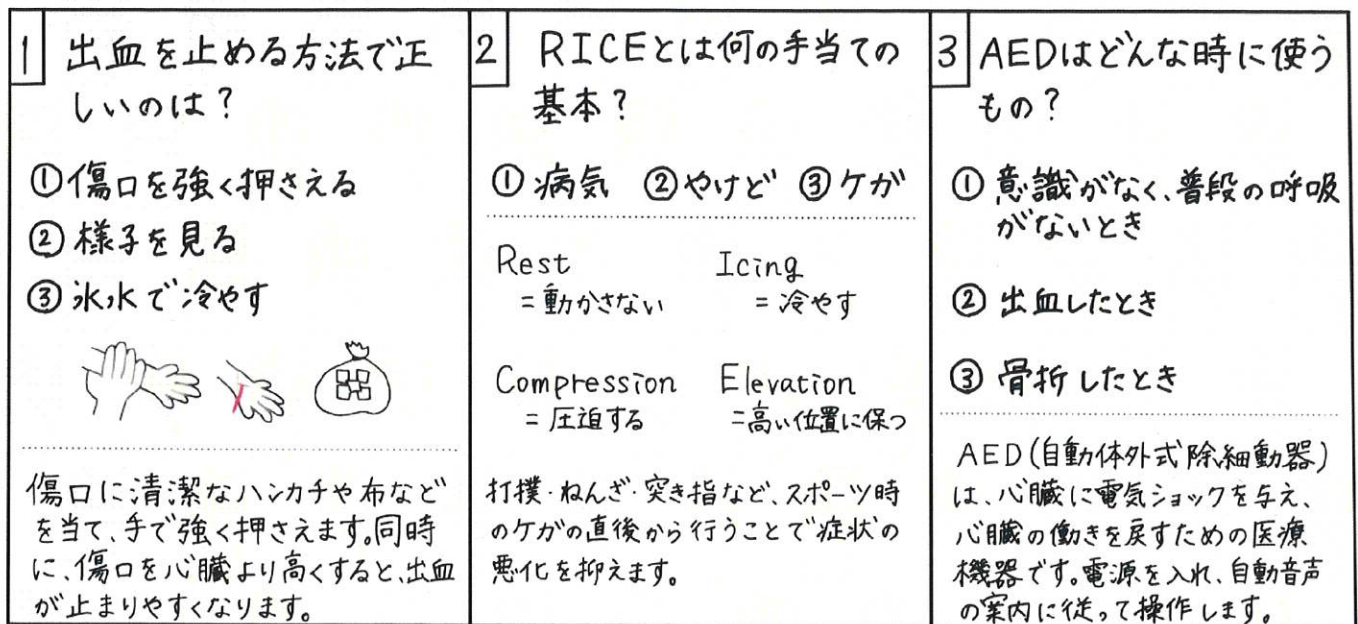 1 出血を止める方法で正
しいのは?
①傷口を強く押さえる
②様子を見る
③氷水で冷やす
傷口に清潔なハンカチや布など
を当て、手で強く押さえます。同時
に、傷口を心臓より高くすると、出血
が止まりやすくなります。
2 RICEとは何の手当ての
基本?
①病気 ②やけど ③ケガ
Rest Icing
=動かさない =冷やす
Compression Elevation
=圧迫する =高い位置に保つ
打撲・ねんざ・突き指など、スポーツ時
のケガの直後から行うことで症状の
悪化を抑えます。
3 AEDはどんな時に使う
もの?
①意識がなく、普段の呼吸
がないとき
②出血したとき
③骨折したとき
AED(自動体外式除細動器)
は、心臓に電気ショックを与え、
心臓の働きを戻すための医療
機器です。電源を入れ、自動音声
の案内に従って操作します。